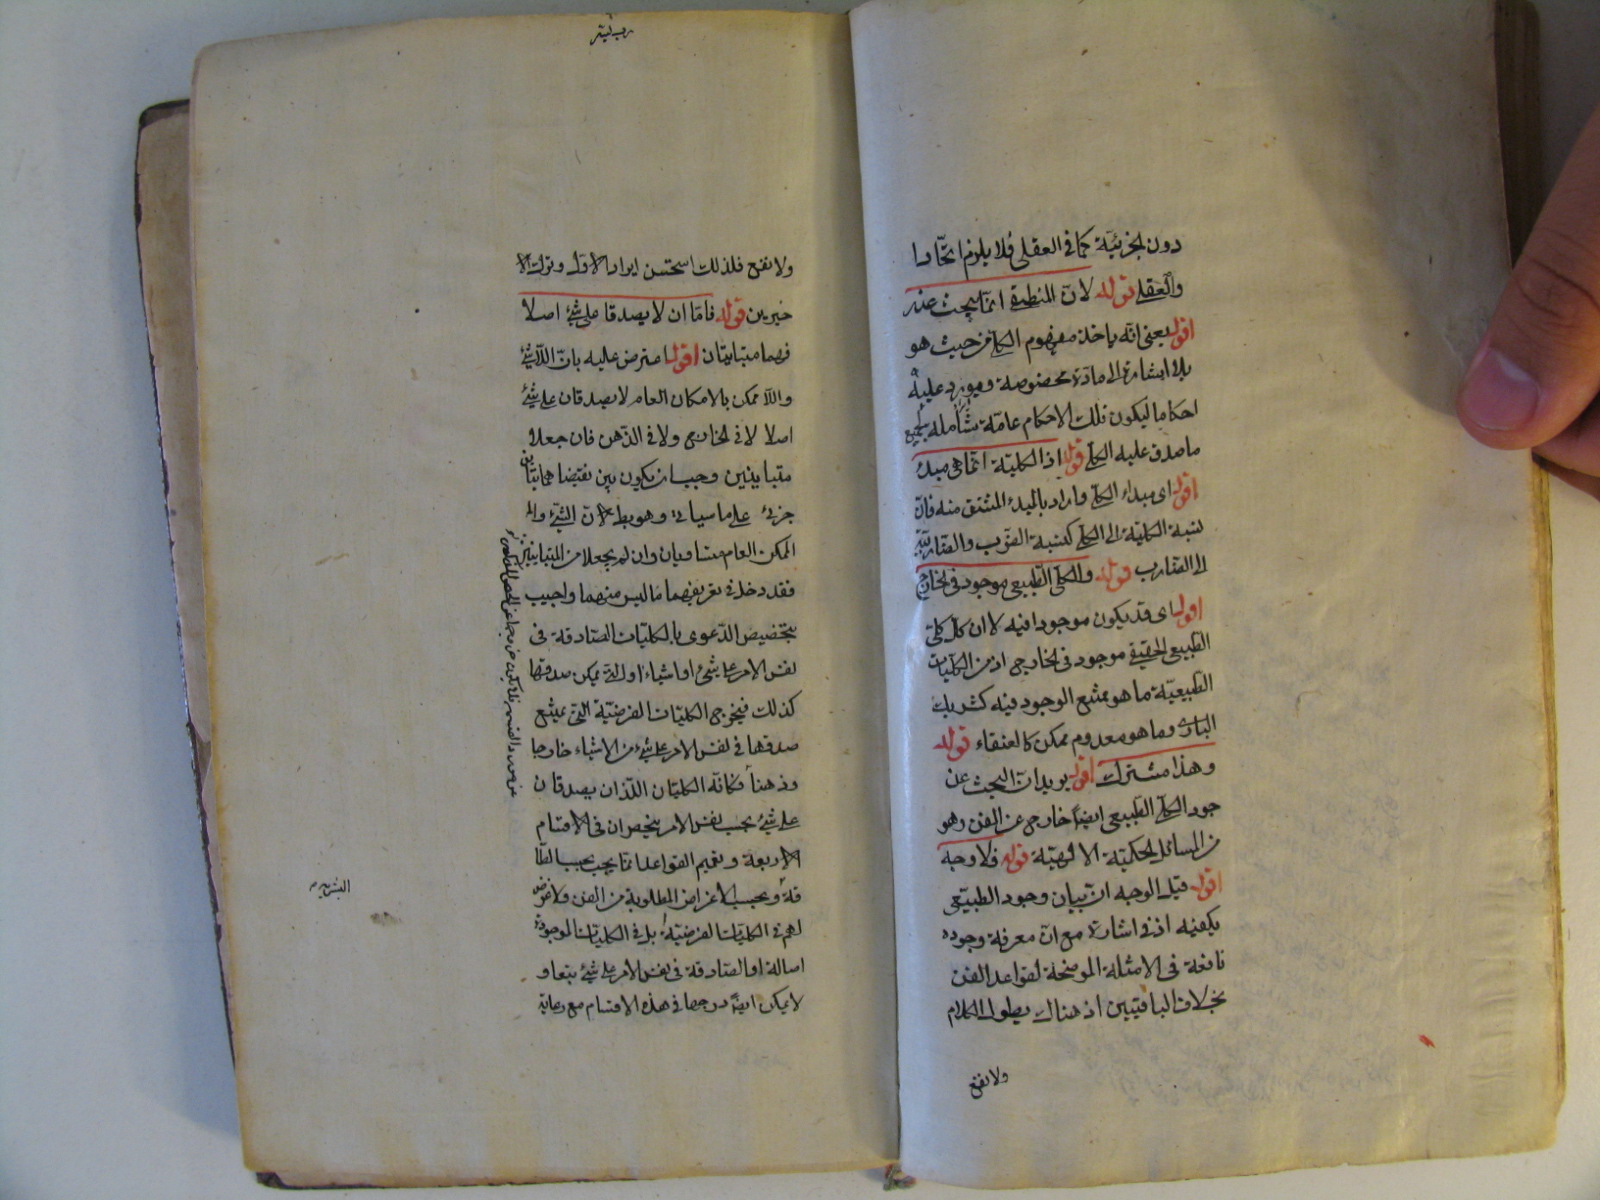 دون الجزئية كما في العقلي فلا يلزم اتحادا
والعقلي قوله لان المنطقي انما يبحث عنه
اقول يعني انه ياخذ مفهوم الكلي من حيث هو
بلا اشارة الى مادة مخصوصة ويورد عليه
احكاما ليكون تلك الاحكام عامة شاملة لجميع
ما صدق عليه الكلي قوله اذ الكلية انما هي مبدء
اقول اى مبداء الكلي واراد بالمبدء المشتق منه فان
نسبة الكلية الى الكلي كنسبة الضرب والضاربية
الى الضارب قوله والكلى الطبيعي موجود في الخارج
اقول اى قد يكون موجودا فيه لا ان كل كلى
الطبيعى الحقيقي موجود في الخارج اذ من الكليات
الطبيعية ما هو ممتنع الوجود فيه كشريك
البارى وما هو معدوم ممكن كالعنقاء قوله
وهذا مشترك اقول يريد ان البحث عن
جود الكلي الطبيعي ايضا خارج عن الفن وهو
من المسائل الحكمية الالهية قوله فلا وجه
اقول قيل الوجه ان بيان وجود الطبيعي
يكفيه ادنى اشارة مع ان معرفة وجوده
نافعة في الامثلة الموضحة لقواعد الفن
بخلاف الباقيين اذ هناك يطول الكلام
ولا نفع
ولا نفع فلذلك استحسن ايراد الاول وترك الا
خيرين قوله فاما ان لا يصدقا على شئ اصلا
فهما متباينان اقول اعترض عليه بان اللاشئ
واللا ممكن بالامكان العام لا يصدقان على شئ
اصلا لا في الخارج ولا في الذهن فان جعلا
متباينين وجب ان يكون بين نقيضاهما تباين
جزئ على ما سياتي وهو بط لان الشئ والم
الممكن العام متساويان وان لم يجعلا من المتباينين
فقد دخل في تعريفهما ما ليس منهما واجيب
بتخصيص الدعوى بالكليات الصادقة في
نفس الامر على شئ او اشياء او التي يمكن صدقها
كذلك فيخرج الكليات الفرضية التي يمتنع
صدقها في نفس الامر على شئ من الاشياء خارجا
وذهنا فكانه الكليتان اللذان يصدقان
على شئ بحسب نفس الامر ينحصران في الاقسام
الاربعة وتعميم القواعد انما يجب بحسب الطا
قة وبحسب الاغراض المطلوبة من الفن ولا غرض
لهم في الكليات الفرضية بل في الكليات الموجودة
اصالة او الصادقة في نفس الامر على شئ تبعا و
لا يمكن ايضا درجها في هذه الاقسام مع رعاية